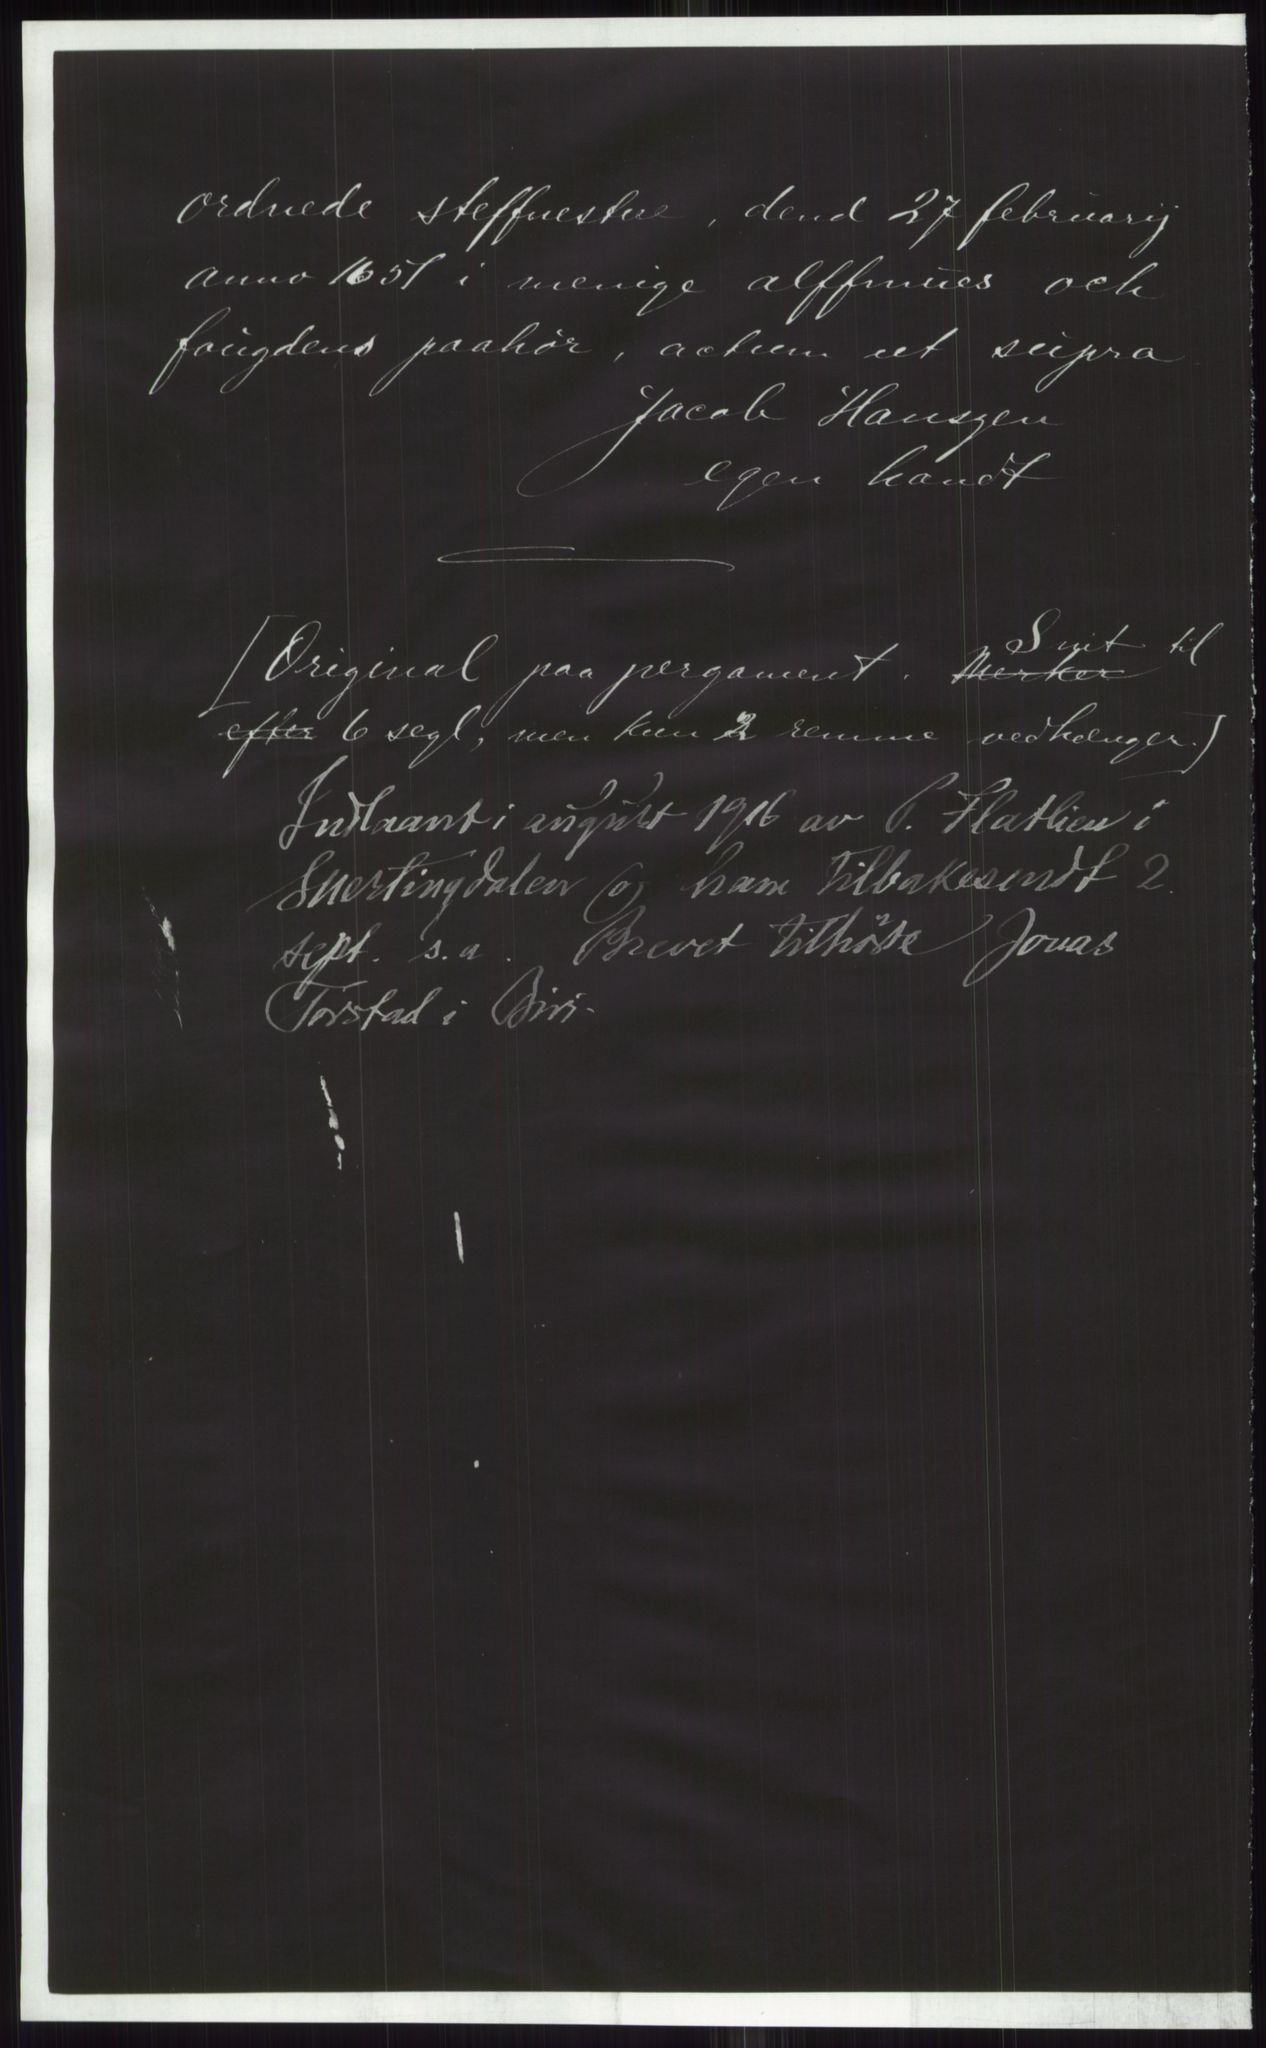 ordnede steffnestue, dend 27 februarij
anno 1651 i menige alffmues och
fougdens paahör, actum ut supra
Jacob Hanszen
egen handt
[Original paa pergament. Merker Snit til
efter 6 segl, men kun 2 remme vedhænger.]
Indlaant i august 1916 av P. Flatlien i
Snertingdalen og ham tilbakesendt 2.
sept. s.a. Brevet tilhörte Jonas
Torstad i Biri.